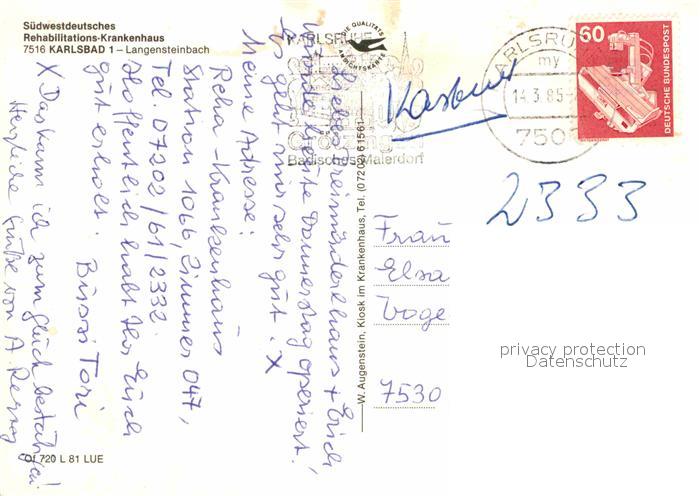 Südwestdeutsches
Rehabilitations-Krankenhaus
7516 KARLSBAD 1 – Langensteinbach
DIE QUALITÄTS
ANSICHTSKARTE
KARLSRUHE
Badisches Malerdorf
14.3.85
my
750
60
DEUTSCHE BUNDESPOST
2333
Frau
Elsa
Voge
7530
privacy protection
Datenschutz
W. Augenstein, Kiosk im Krankenhaus, Tel. (07202) 61561
Liebes + Erich
heute Donnerstag operiert!
Es geht mir sehr gut! X
Meine Adresse:
Reha-Krankenhaus
Station 1066, Zimmer 047,
Tel. 07202/61/2332
Hoffentlich habt Ihr Euch
gut erholt. Bussi Tori
X Das kann ich zum Glück bestätigen!
Herzliche Grüße von A.
Of 720 L 81 LUE